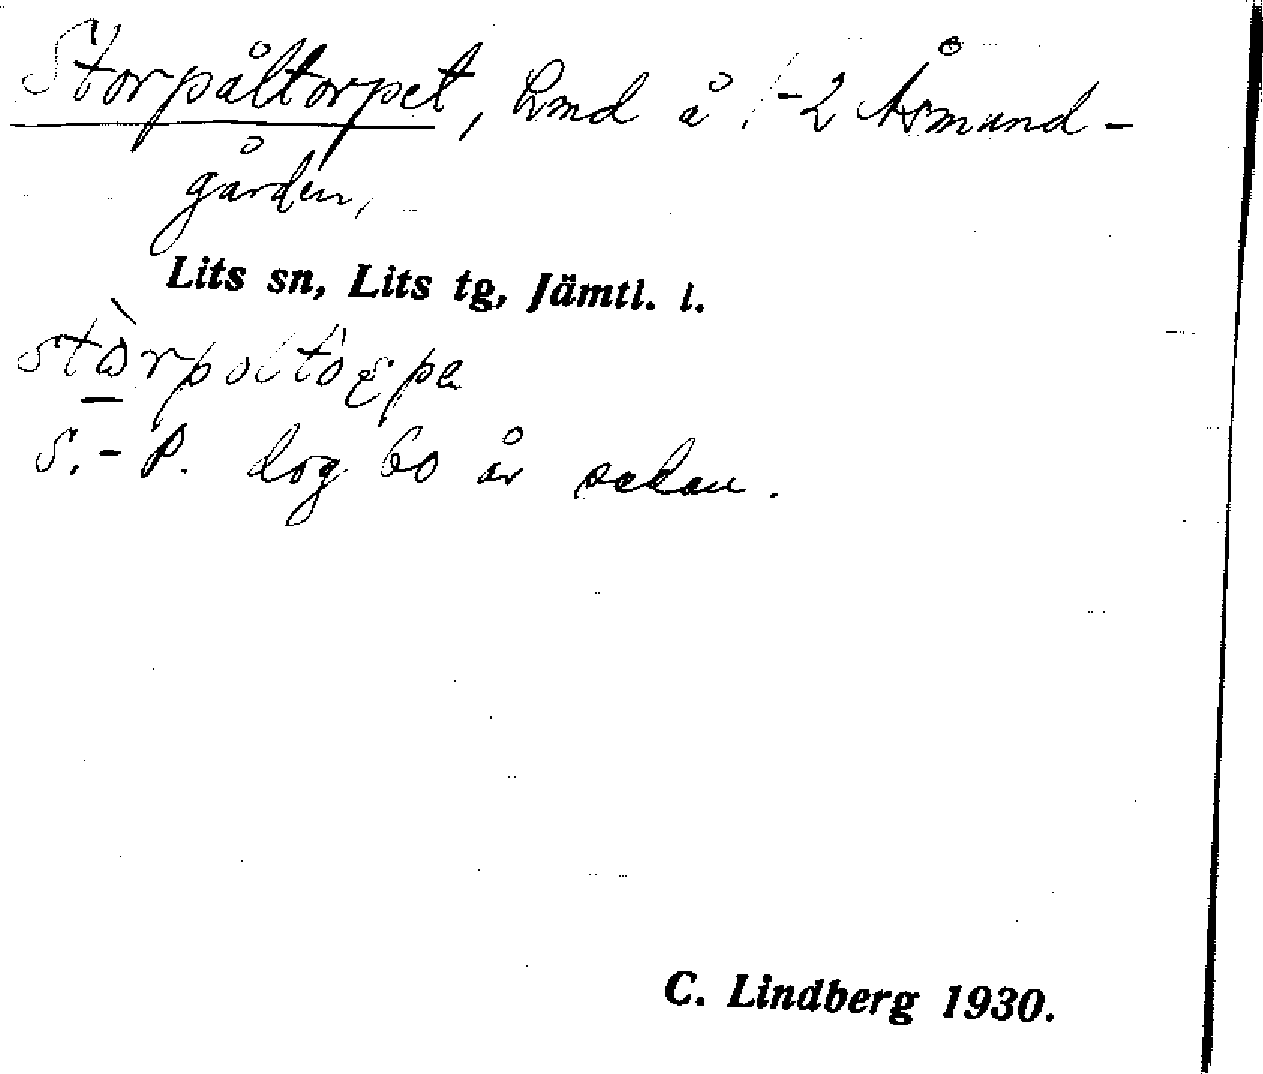 Storpåltorpet, Lmd å 1-2 Åsmund-
gården,
Lits sn, Lits tg, Jämtl. l.
S.-P. dog 60 år sedan.
C. Lindberg 1930.